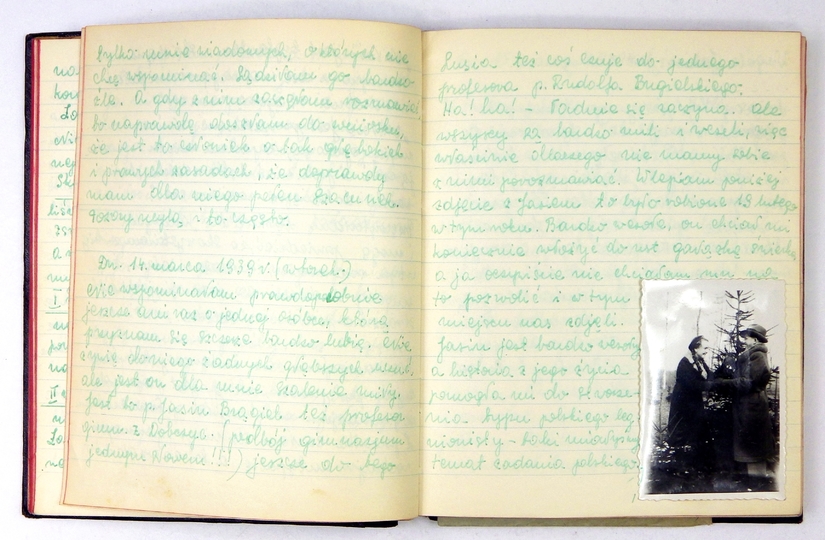 tylko mnie wiadomych, o których nie
chcę wspominać. Sądziłam go bardzo
źle. A gdy z nim zaczęłam rozmawiać
to naprawdę doszłam do wniosku,
że jest to człowiek o tak głębokich
i prawych zasadach, że doprawdy
mam dla niego pełen szacunek.
Pozory mylą i to często.
Dn. 14. marca 1939 r. (wtorek.)
Nie wspominałam prawdopodobnie
jeszcze ani raz o jednej osóbce, którą
przyznam się szczerze bardzo lubię. Nie
żywię do niego żadnych głębszych uczuć,
ale jest on dla mnie szalenie miły.
Jest to p. Jasiu Brągiel też profesor
gimn. z Dobczyc. (podbój gimnazjum
jednym słowem!!!) jeszcze do tego
Lusia też coś czuje do jednego
profesora p. Rudolfa Bugielskiego.
Ha! ha! - Ładnie się zaczyna.. ale
wszyscy są bardzo mili i weseli, więc
właściwie dlaczego nie mamy sobie
z nimi porozmawiać. Wlepiam poniżej
zdjęcie z Jasiem to było robione 19 lutego
w tym roku. Bardzo wesołe, on chciał mi
koniecznie włożyć do ust gałązkę
a ja oczywiście nie chciałam mu na
to pozwolić i w tym
miejscu nas zdjęli.
Jasiu jest bardzo wesoły
a historia z jego życia
pomogła mi do
typu polskiego leg
ionisty - taki miałyśmy
temat zadania polskiego,
na
Lo
I
II